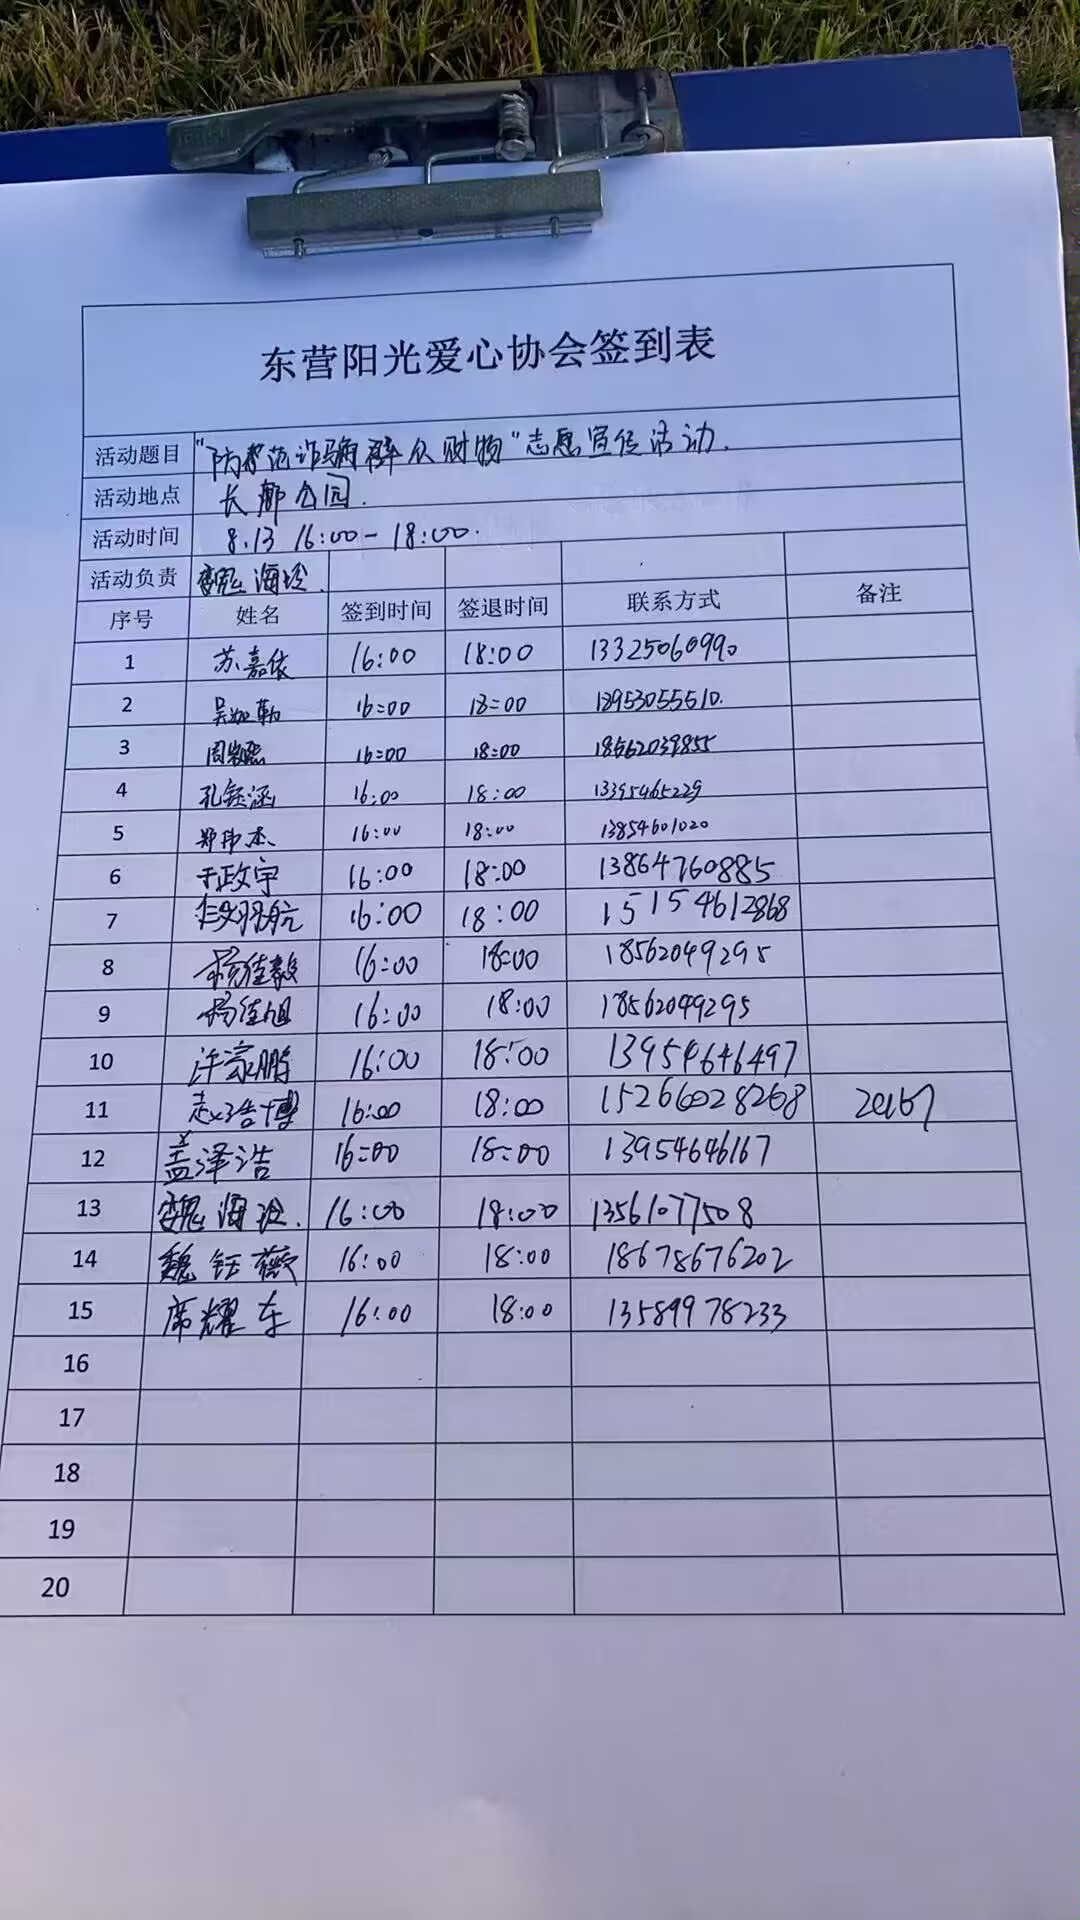 东营阳光爱心协会签到表
活动题目 "防范诈骗群众财物"志愿宣传活动.
活动地点 长廊公园.
活动时间 8.13 16:00-18:00.
活动负责 魏海玲.
序号 姓名 签到时间 签退时间 联系方式 备注
1 苏嘉依 16:00 18:00 13325060990
2 16:00 18:00 18953055510.
3 16:00 18:00 18562039855
4 孔钰涵 16:00 18:00 13395465229
5 郑伟杰 16:00 18:00 13854601020
6 于政宇 16:00 18:00 13864760885
7 16:00 18:00 15154612868
8 杨佳毅 16:00 18:00 18562049295
9 杨佳旭 16:00 18:00 18562049295
10 许家鹏 16:00 18:00 13954646497
11 16:00 18:00 15266028268
12 盖泽浩 16:00 18:00 13954646167
13 魏海玲. 16:00 18:00 13561077508
14 魏钰薇 16:00 18:00 18678676202
15 席耀东 16:00 18:00 13589978233
16
17
18
19
20